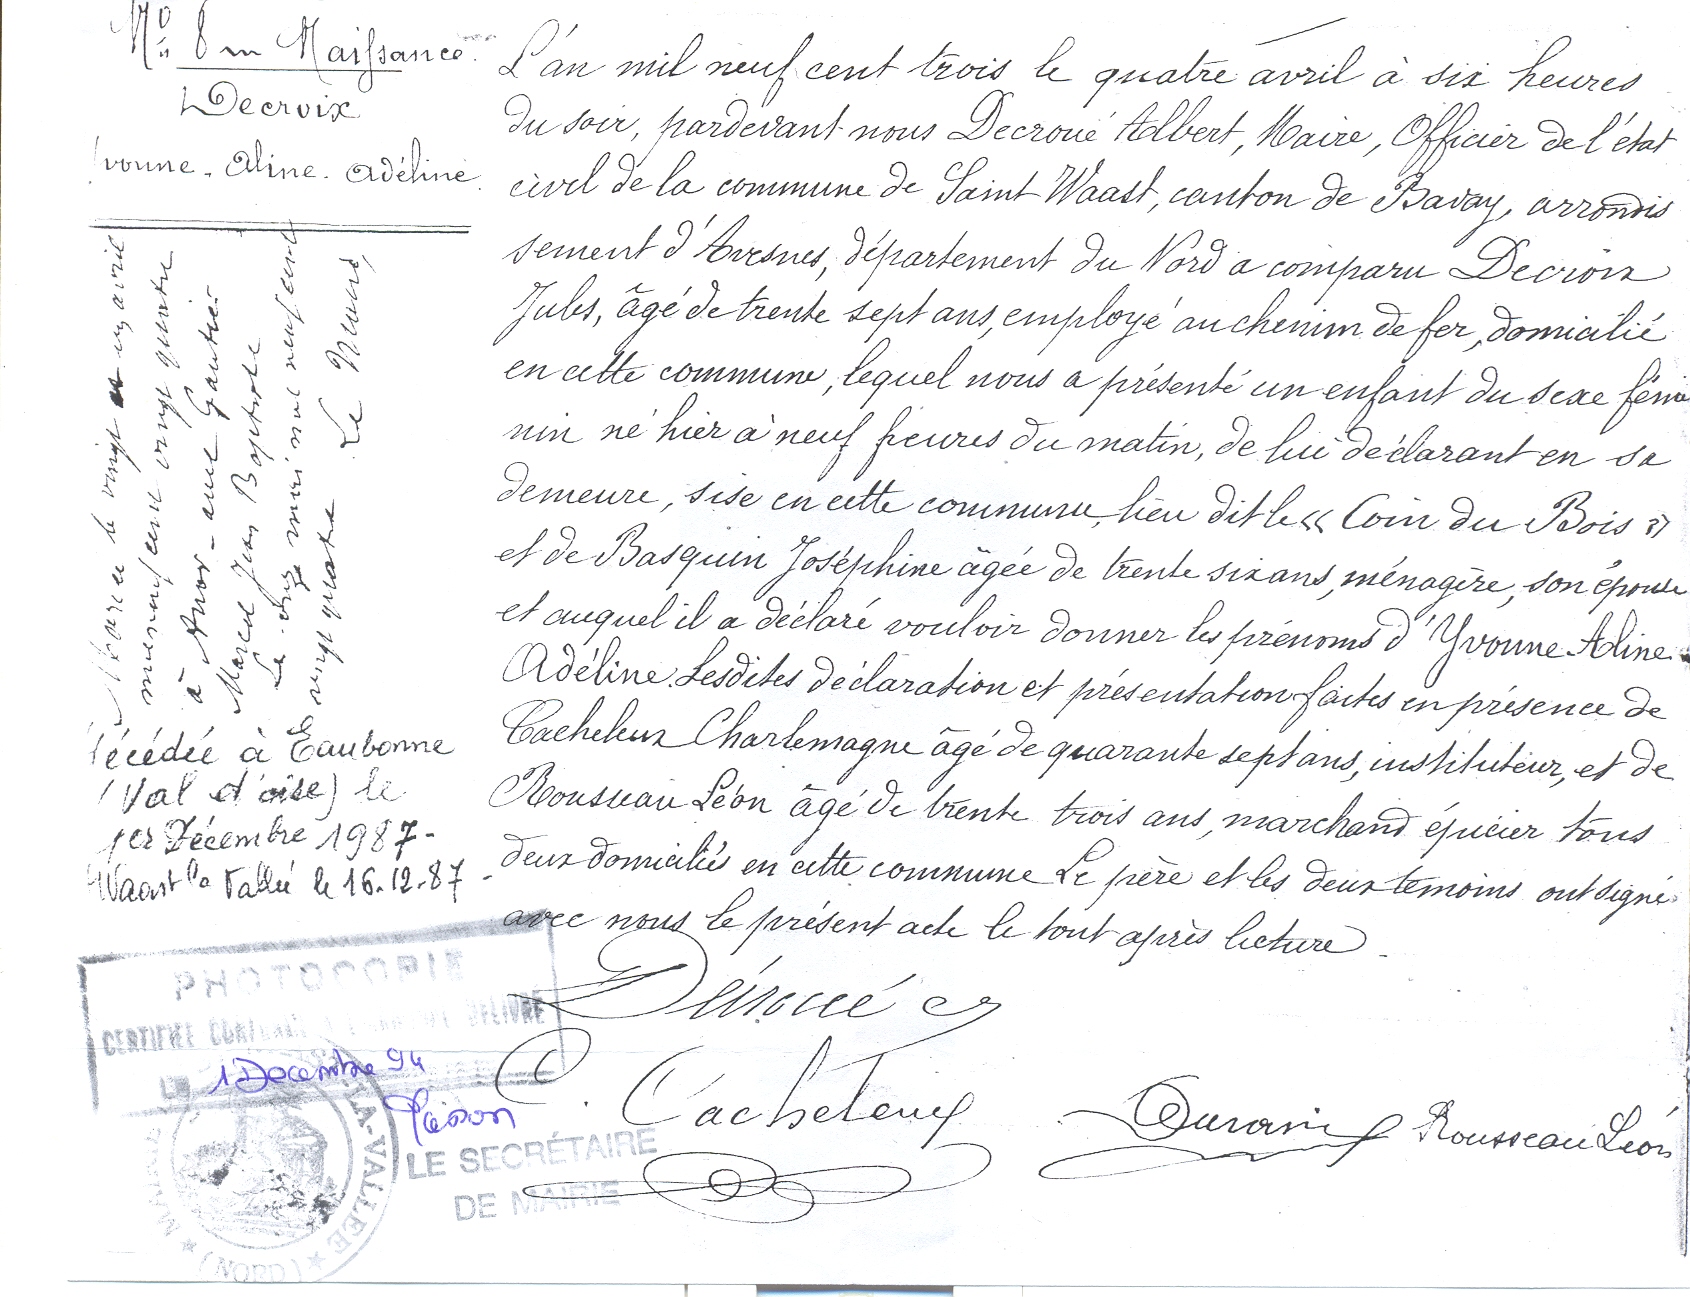 Nº 8 Naissance
Decroix
Yvonne - Aline - Adéline
Mariée le vingt et un avril
mil neuf cent vingt quatre
à Anor - avec Gautier
Marcel Jean Baptiste
Le onze mai mil neuf cent
vingt quatre Le Maire,
Décédée à Eaubonne
(Val d'oise) le
1er Décembre 1987 -
Waast la Vallée le 16.12.87 -
L'an mil neuf cent trois le quatre avril à six heures
du soir, pardevant nous Decroué Albert, Maire, Officier de l'état
civil de la commune de Saint Waast, canton de Bavay, arrondis
sement d'Avesnes, département du Nord a comparu Decroix
Jules, âgé de trente sept ans, employé au chemin de fer, domicilié
en cette commune, lequel nous a présenté un enfant du sexe fémi
nin né hier à neuf heures du matin, de lui déclarant en sa
demeure, sise en cette commune, lieu dit le « Coin du Bois »
et de Basquin Joséphine âgée de trente six ans, ménagère, son épouse
et auquel il a déclaré vouloir donner les prénoms d'Yvonne Aline
Adéline. Lesdites déclaration et présentation faites en présence de
Cacheleux Charlemagne âgé de quarante sept ans, instituteur, et de
Rousseau Léon âgé de trente trois ans, marchand épicier tous
deux domiciliés en cette commune Le père et les deux témoins ont signé
avec nous le présent acte le tout après lecture.
C. Cacheleux
Rousseau Léon
PHOTOCOPIE
CERTIFIEE CONFORME DELIVRE
LE 1 Decembre 94
LE SECRÉTAIRE
DE MAIRIE
LA-VALLEE
(NORD)